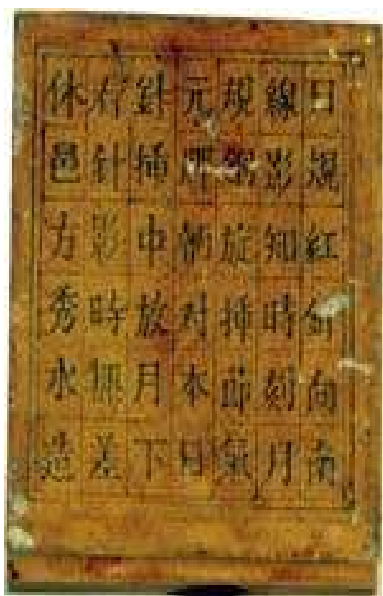 日規紅針向南
線影知時刻月
規旋揷節氣
元对本日
針插中放月下
針影時無差
休邑方秀水造